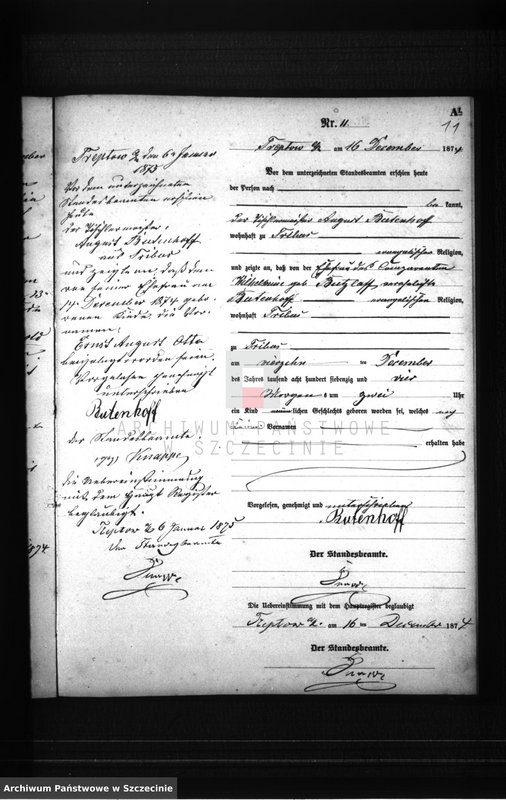 A.
11
Nr. 11.
Treptow a/R. am 16 December 1874
Vor dem unterzeichneten Standesbeamten erschien heute
der Person nach
kannt,
der Tischlermeister August Butenhoff
wohnhaft zu Tribus
evangelischer Religion,
und zeigte an, daß von der Ehefrau des Comparenten
Wilhelmine geb verehelichte
Butenhoff evangelischer Religion,
wohnhaft Tribus
zu Tribus
am vierzehn ten December
des Jahres tausend acht hundert siebenzig und vier
Morgens um zwei Uhr
ein Kind männlichen Geschlechts geboren worden sei, welches noch
keinen Vornamen
erhalten habe
Vorgelesen, genehmigt und unterschrieben
Butenhoff
Der Standesbeamte.
Die Uebereinstimmung mit dem Hauptregister beglaubigt
Treptow a/R. am 16 December 1874
Der Standesbeamte.
Treptow a/R den 6 Januar
1875
Vor dem unterzeichneten
Standesbeamten erschien
heute
der Tischlermeister
August Butenhoff
aus Tribus
und zeigte an, daß dem
von seiner Ehefrau am
14. December 1874 gebo-
renen Kinde die Vor-
namen:
Ernst August Otto
beigelegt worden seien.
Vorgelesen genehmigt
unterschrieben
Butenhoff
der Standesbeamte.
gez. Knappe
die Uebereinstimmung
mit dem Haupt Register
beglaubigt.
Treptow a/R 6 Januar 1875
der Standesbeamte
1874
ARCHIWUM PAŃSTWOWE
SZCZECINIE
Archiwum Państwowe w Szczecinie